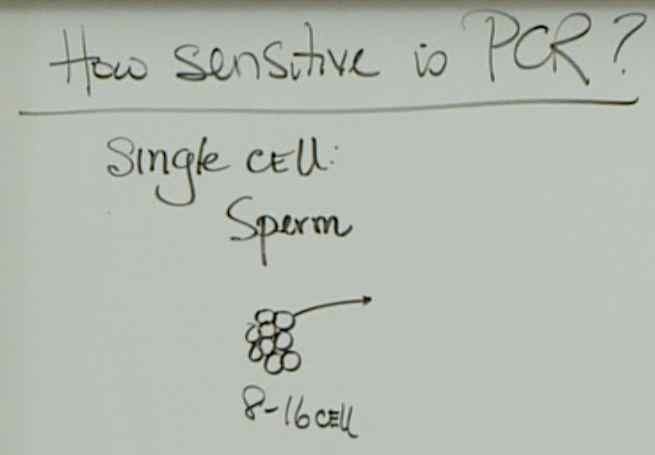 How sensitive is PCR?
Single cell:
Sperm
8-16 cell